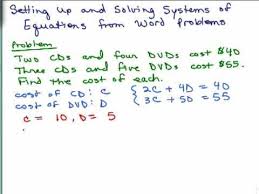 Setting Up and Solving Systems of
Equations from Word Problems
Problem
Two CDs and four DVDs cost $40
Three CDs and five DVDs cost $55.
Find the cost of each.
cost of CD : C { 2C + 4D = 40
cost of DVD: D { 3C + 5D = 55
C = 10, D = 5